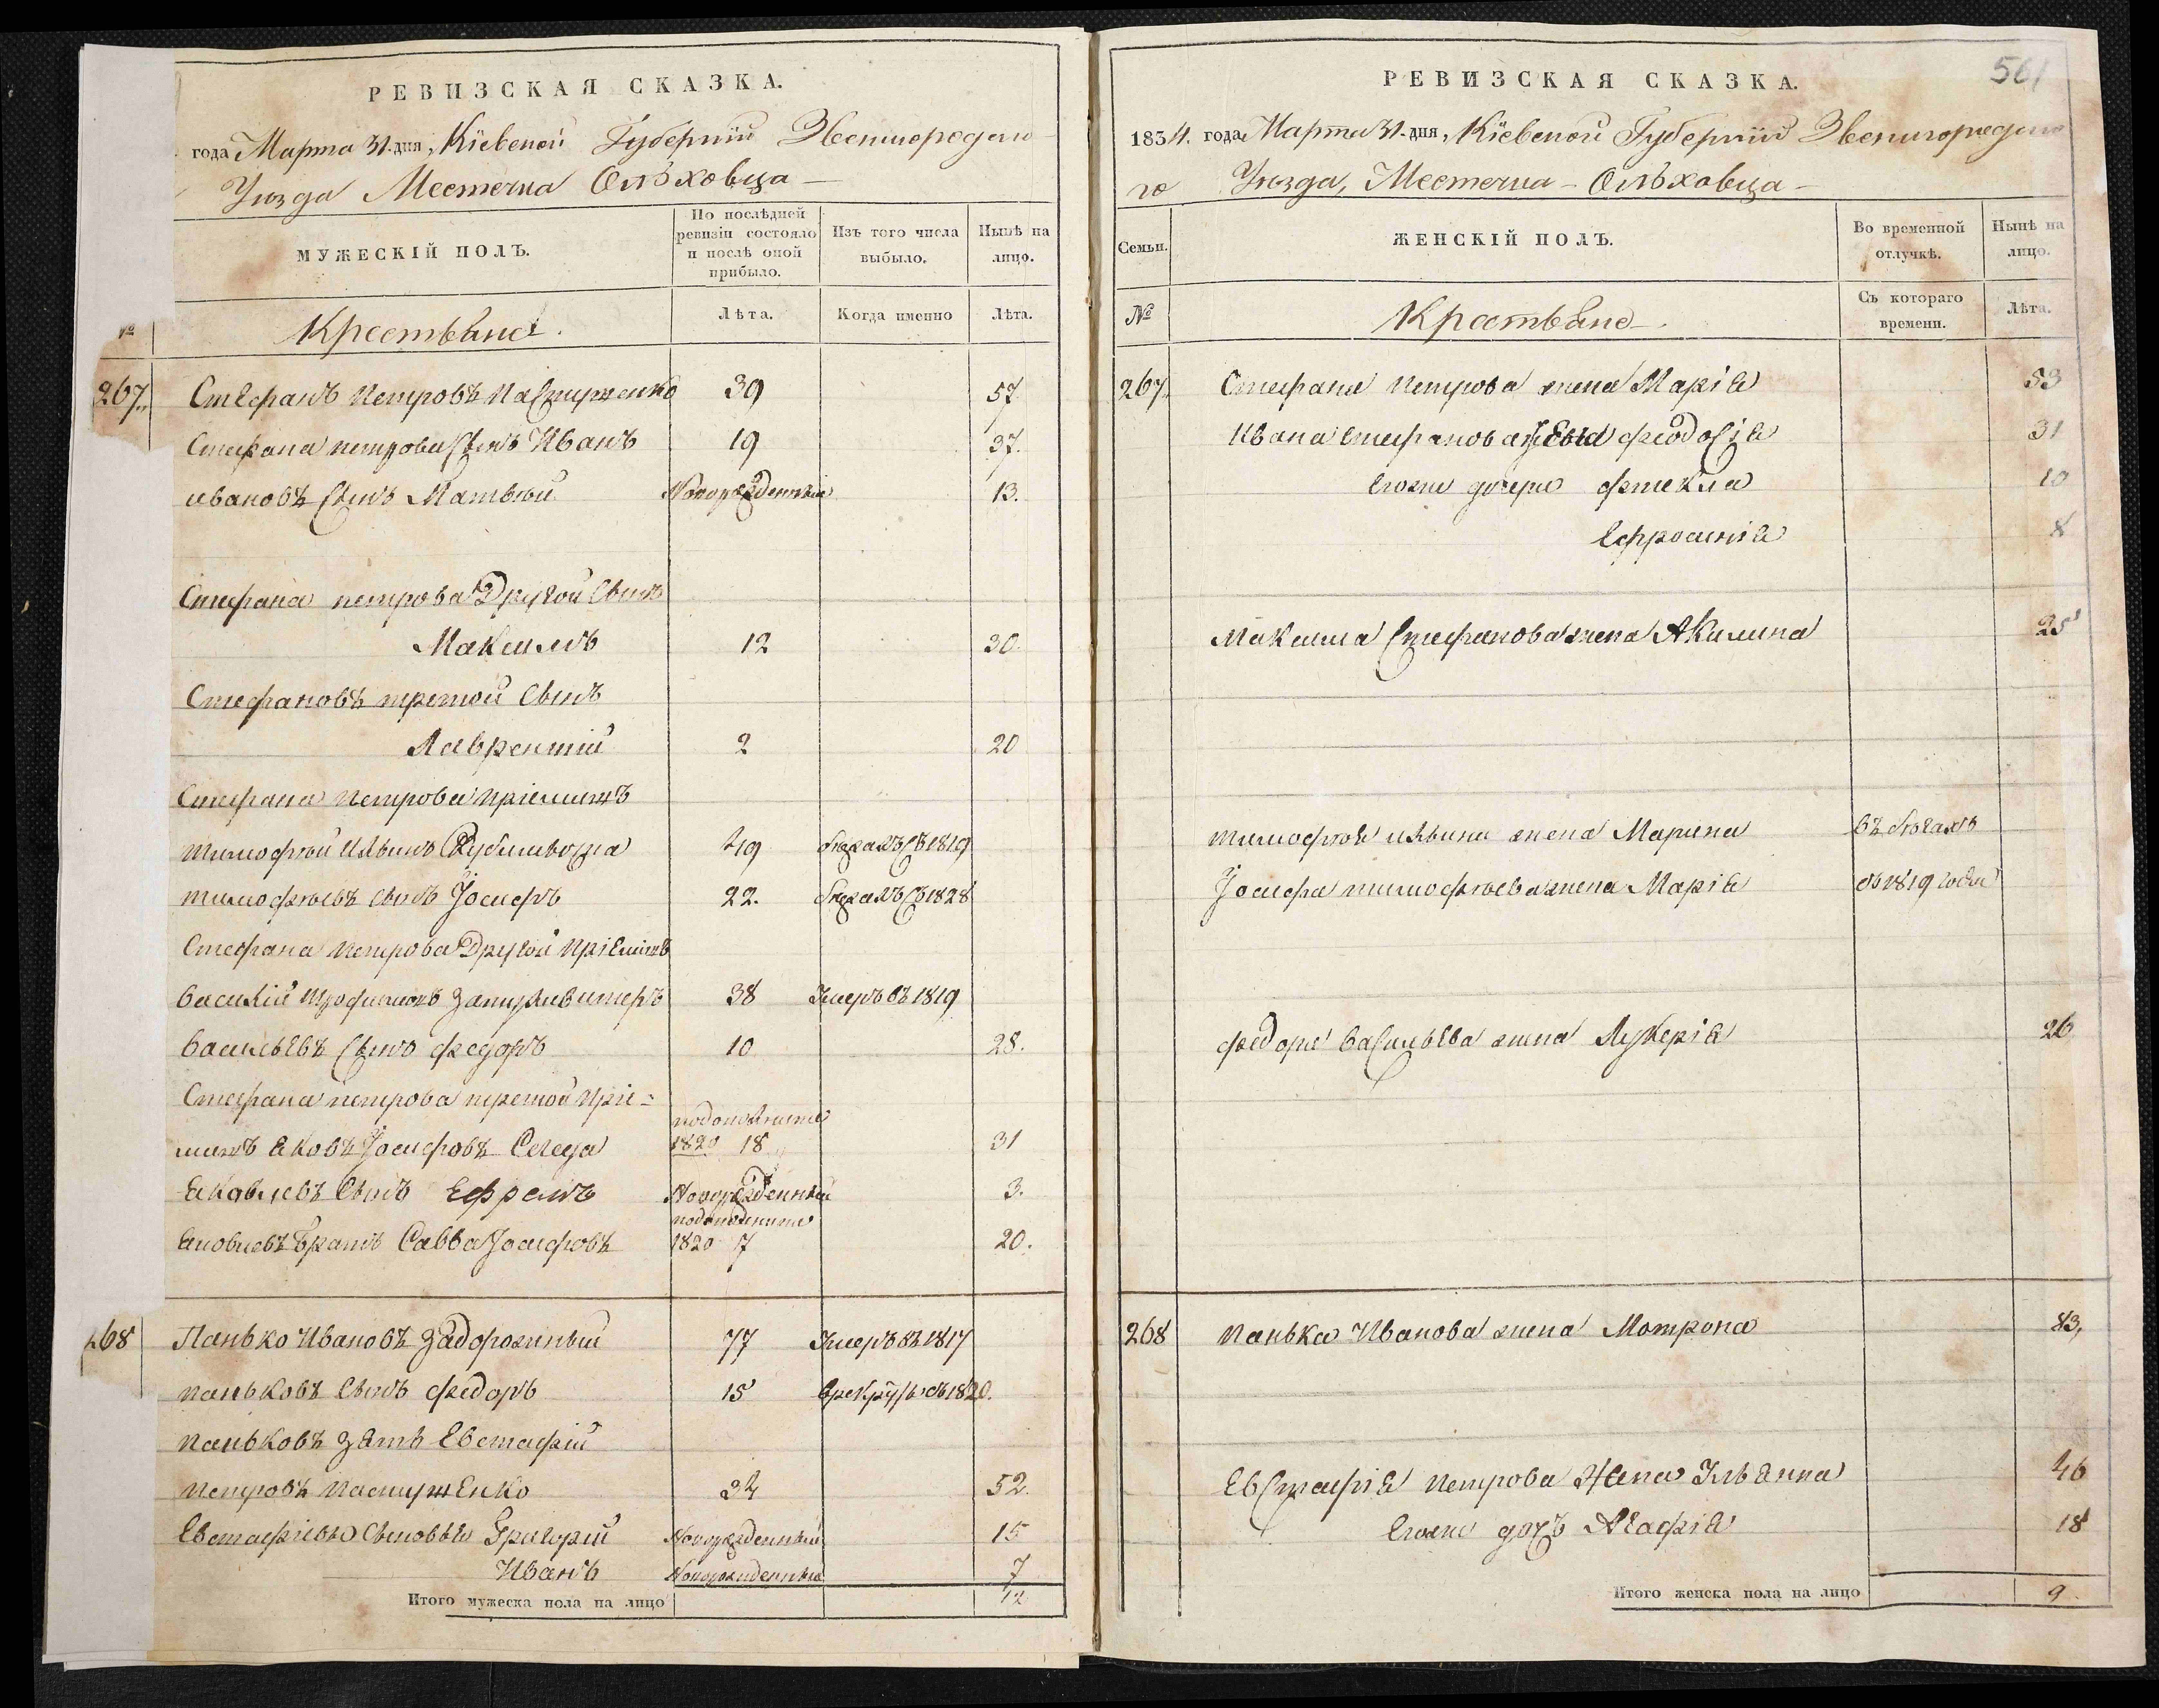 РЕВИЗСКАЯ СКАЗКА.
года Марта 31. дня, Кіевской Губерніи Звенигородско
Уѣзда Местечка Ольховца
МУЖЕСКІЙ ПОЛЪ.
По послѣдней ревизіи состояло и послѣ оной прибыло.
Изъ того числа выбыло.
Нынѣ на лицо.
№
Крестьяне.
Лѣта.
Когда именно
Лѣта.
267. Стефанъ Петровъ Пастушенко 39 57.
Стефана петрова сынъ Иванъ 19 37.
ивановъ сынъ Матвѣй Новорожденный 13.
Стефана петрова Другой Сынъ
Максимъ 12 30.
Стефановъ третой Сынъ
Лаврентій 2 20
Стефана Петрова пріимитъ
тимофѣй Ильинъ 49 бѣжалъ съ 1819
тимофѣевъ сынъ Іосифъ 22. бѣжалъ съ 1828
Стефана Петрова Другой пріемитъ
василій трофимовъ 38 Умеръ въ 1819
васильевъ сынъ федоръ 10 28.
Стефана петрова третой прі-
имитъ яковъ Іосифовъ 1820 18 31
яковлевъ Сынъ Ефремъ Новорожденный 3.
яковлевъ братъ Савва Іосифовъ 1820 7 20.
268 Панько Ивановъ Задорожный 77 Умеръ въ 1817
паньковъ сынъ федоръ 15 въ 1820.
паньковъ зять Евстафій
петровъ пастушенко 34 52.
Евстафіевы Сыновья Григорій Новорожденный 15
Иванъ Новорожденный 7
Итого мужеска пола на лицо 12
561
РЕВИЗСКАЯ СКАЗКА.
1834. года Марта 31. дня, Кіевской Губерніи Звенигородско
го Уѣзда, Местечка - Ольховца -
Семьи.
ЖЕНСКІЙ ПОЛЪ.
Во временной отлучкѣ.
Нынѣ на лицо.
№
Крестьяне.
Съ котораго времени.
Лѣта.
267. Стефана Петрова жена Марія 53
Ивана Стефанова жена феодосія 31
Егоже дочери фтекла 10
Ефросинія 8
Максима Стефанова жена Акилина 25
тимофѣя ильина жена Марина въ бѣгахъ
Іосифа тимофѣева жена Марія съ 1819 года
федора васильева жена Лукерія 26
268 панька Иванова жена Мотрона 83,
Евстафія Петрова жена Ульянна 46
Егоже дочь Агафія 18
Итого женска пола на лицо 9.